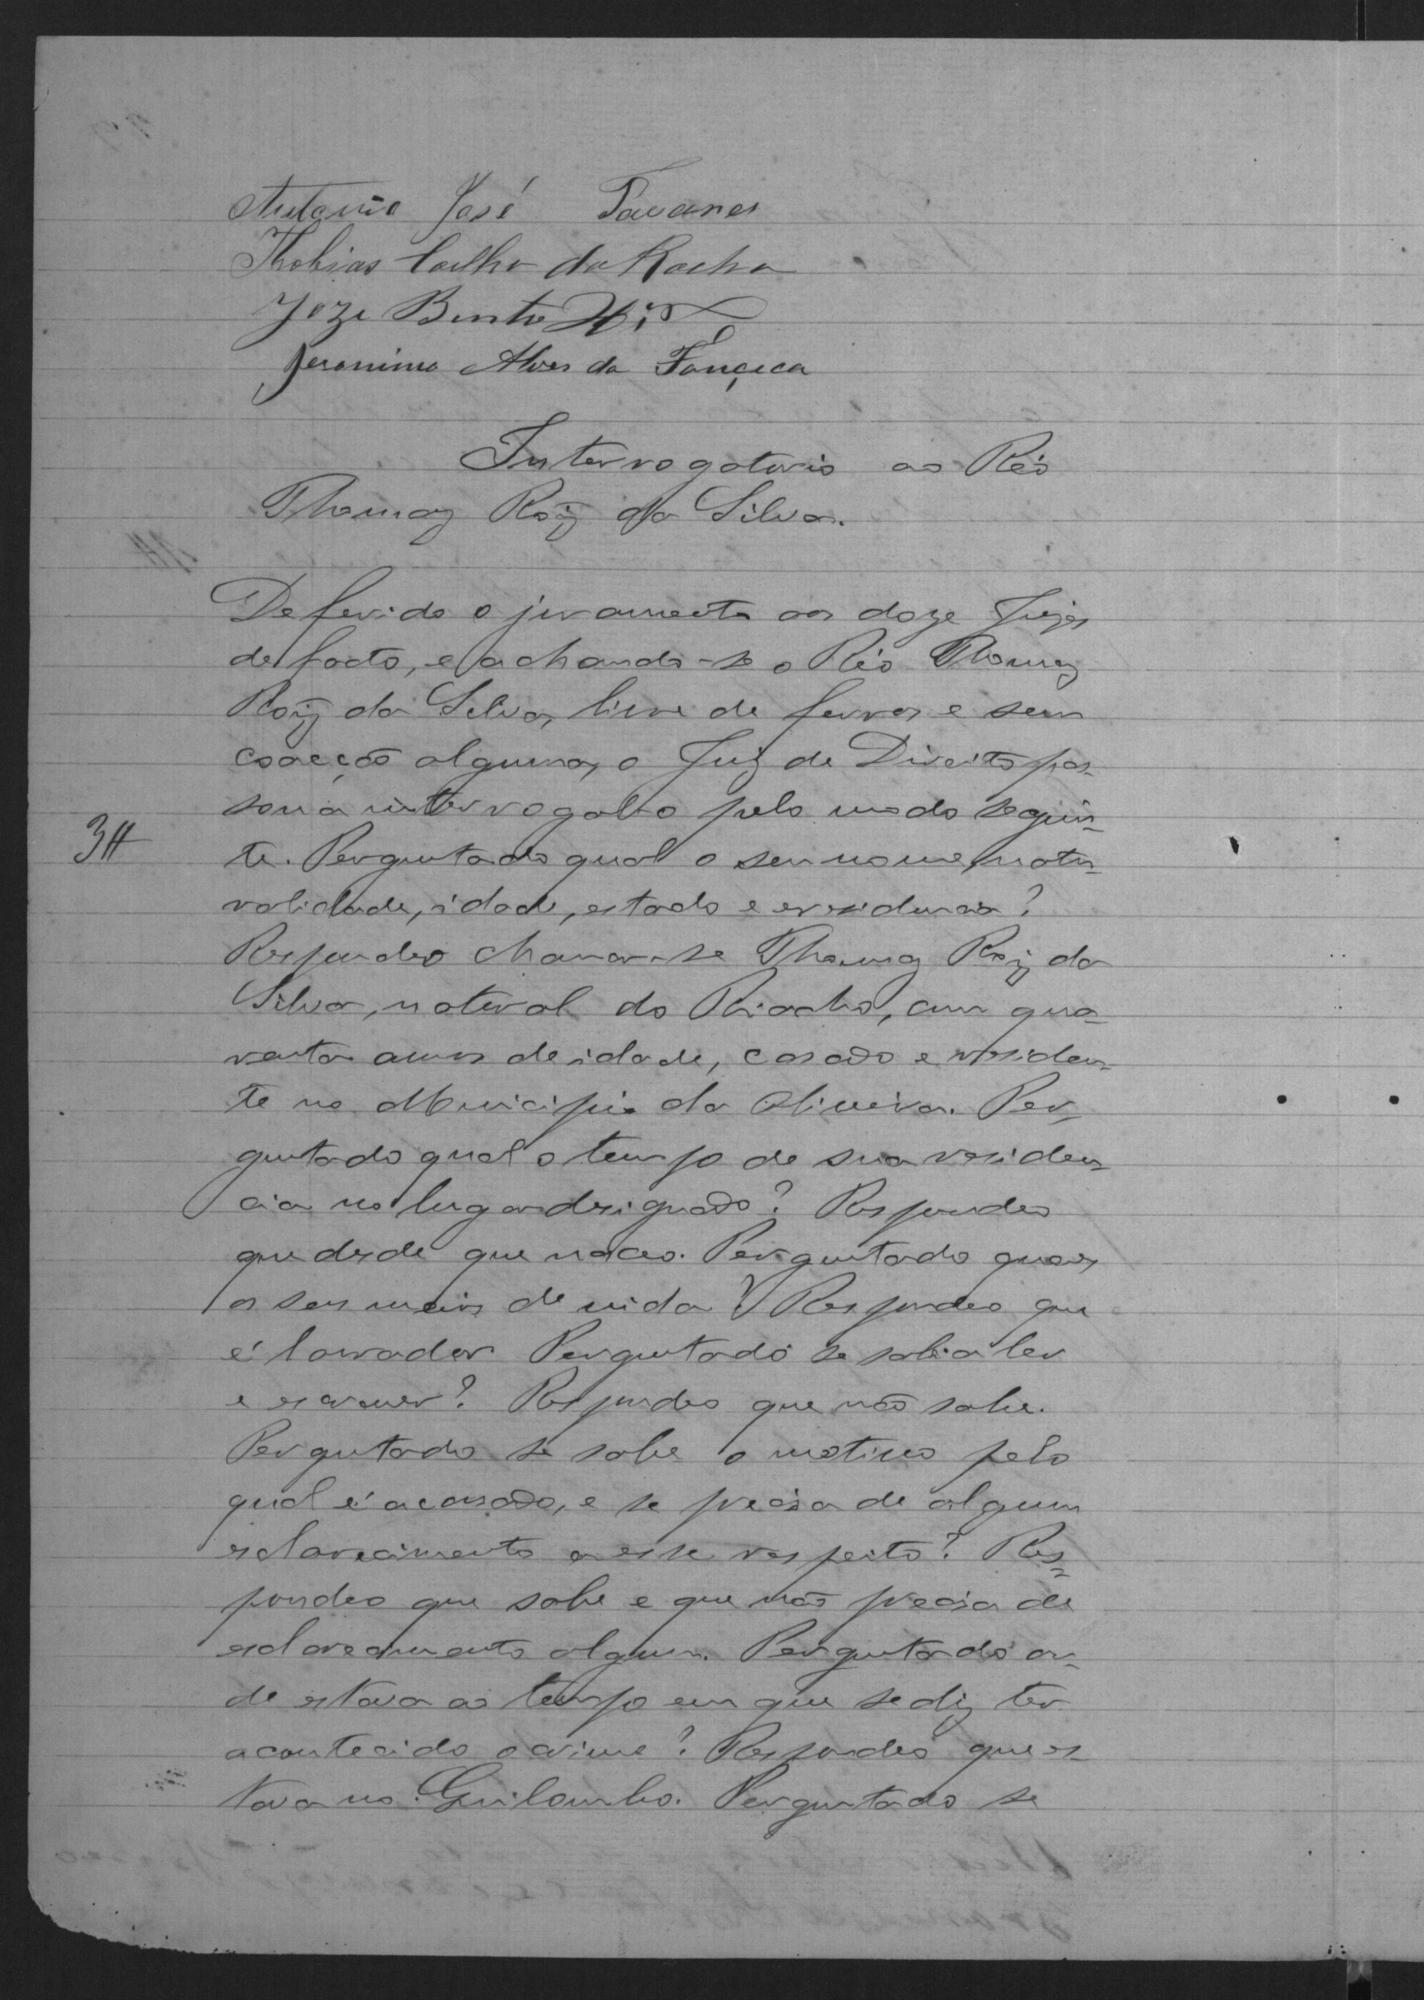 Antonio José Tavares
Thobias Coelho da Rocha
Joze Bento
Jeronimo Alves da Fonçeca
Interrogatorio ao Réo
Thomaz Roiz da Silva.
Deferido o juramento aos doze Juizes
de facto, e achando-se o Réo Thomaz
Roiz da Silva, livre de ferros e sem
coacção alguma, o Juiz de Direito pas-
sou a interrogal-o pelo modo seguin-
te. Perguntado qual o seu nome, natu-
ralidade, idade, estado e residencia?
Respondeo chamar-se Thomaz Roiz da
Silva, natural do Riacho, com qua-
renta annos de idade, casado e residen-
te no Municipio da Oliveira. Per-
guntado qual o tempo de sua residen-
cia no lugar designado? Respondeo
que desde que naceo. Perguntado quaes
os seus meios de vida? Respondeo que
é lavrador. Perguntado se sabia ler
e escrever? Respondeo que não sabe.
Perguntado se sabe o motivo pelo
qual é acusado, e se precisa de algum
esclarecimento a esse respeito? Res-
pondeo que sabe e que não precisa de
esclarecimento algum. Perguntado on-
de estava ao tempo em que se diz ter
acontecido o crime? Respondeo que es-
tava no Guilombo. Perguntado se
34